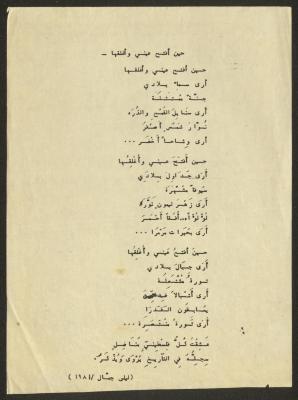 حين أفتح عيني وأغلقها -
حين أفتح عيني وأغلقها
أرى سماءَ بلادي
جنّةً
أرى سنابل القمح والذره
نُوّارَ شمسٍ أصفر
أرى وشاحاً أخضر ...
حين أفتح عيني وأغلقها
أرى جداول بلادي
سيوفاً مُشهرة
أرى زهر ليمون نَوّره
لؤلؤاً
أرى بحيرات مرمرا ...
حين أفتح عيني وأغلقها
أرى جبال بلادي
ثورةً مُشتعلة
أرى أشبالاً
يعانقون القدرا
أرى ثورةً منتصرة ...
فلسطينيٍّ يناضل
في التأريخ يُروى
(ليلى جمال / ١٩٨١)